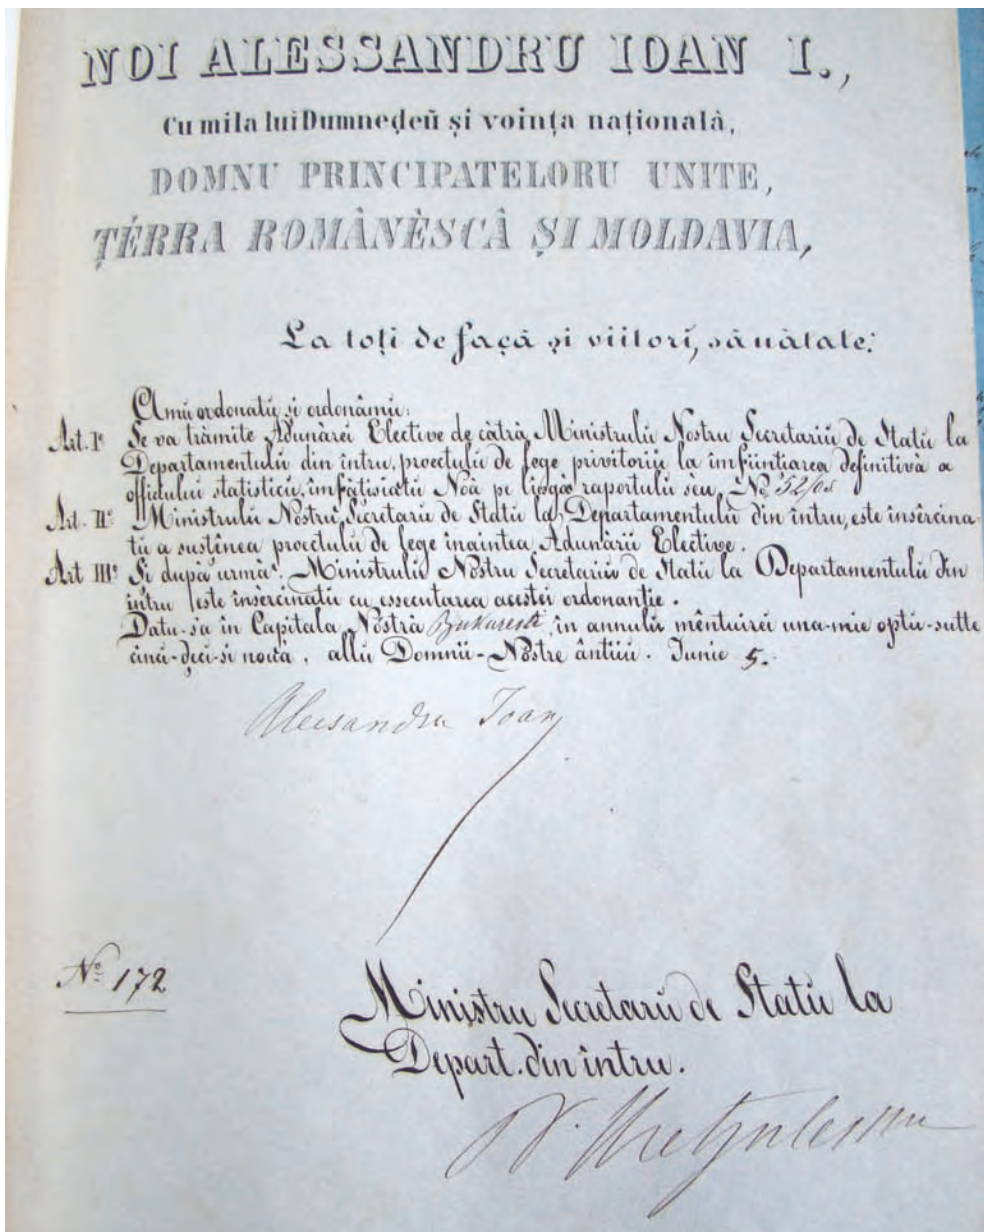 NOI ALESSANDRU IOAN I.,
Cu mila lui Dumneḑeŭ și voința națională,
DOMNU PRINCIPATELORU UNITE,
ȚÉRRA ROMÂNÈSCÂ ȘI MOLDAVIA,
La toți de façă și viitori, sănătate:
Amu ordonatŭ și ordonâmŭ:
Art. I° Se va trămite Adunărei Elective de cătră Ministrulŭ Nostru Secretariŭ de Statŭ la
Departamentulŭ din întru, proectulŭ de lege privitoriŭ la înființiarea definitivă a
offidului statisticŭ, înfățisiatŭ Noă pe lîngă raportulŭ sĕu, No.
Art. II° Ministrulŭ Nostru Secretariŭ de Statŭ la Departamentulŭ din întru, este însĕrcina-
tŭ a susținea proectulŭ de lege înaintea Adunării Elective.
Art III° Și după urmă. Ministrulŭ Nostru Secretariŭ de Statŭ la Departamentulŭ din
întru este însĕrcinatŭ cu essecutarea acestei ordonanție.
Datu-s'a în Capitala Nóstră Bukuresti, în annulŭ mĕntuirei una-mie optŭ-sutte
cinci-ḑeci-si nouă, allŭ Domnii-Nóstre ântiiŭ. Junie 5.
Alecsandru Ioan
No. 172
Ministru Secretariŭ de Statŭ la
Depart. din întru.